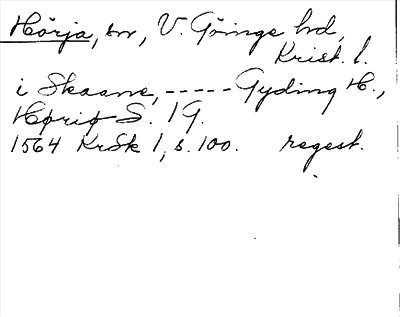 Hörja, sn, V. Göinge hd,
Krist. l.
i Skaane, ----- Gyding H.,
Høriø S. 19.
1564 KrSk 1, s. 100. regest.